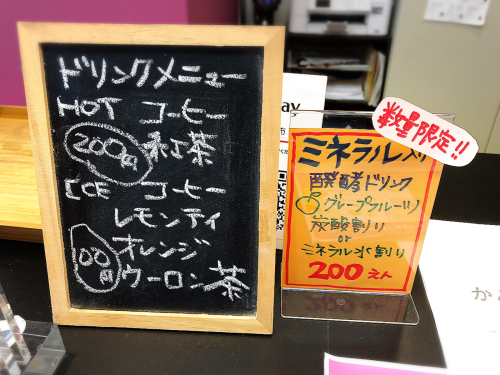 ドリンクメニュー
HOT コーヒー
200円 紅茶
ICE コーヒー
レモンティ
100円 オレンジ
ウーロン茶
ay
市
数量限定!!
ミネラル入り
醗酵ドリンク
グレープフルーツ
炭酸割り
or
ミネラル水割り
200えん
か